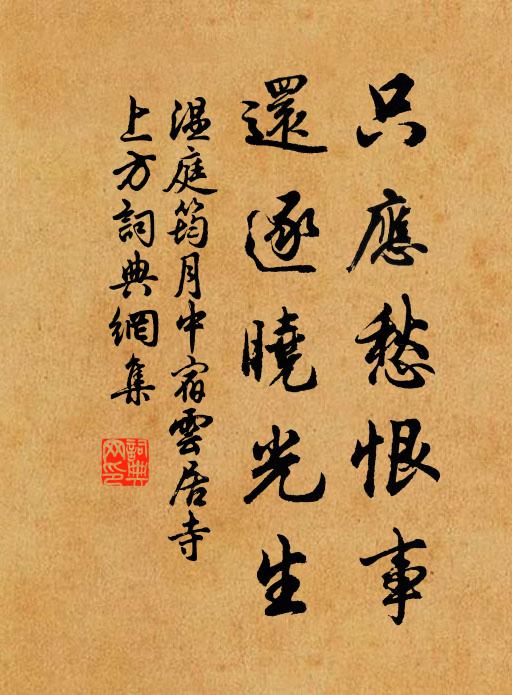 只應愁恨事
還逐曉光生
溫庭筠月中宿雲居寺
上方詞典網集
詞典
网印